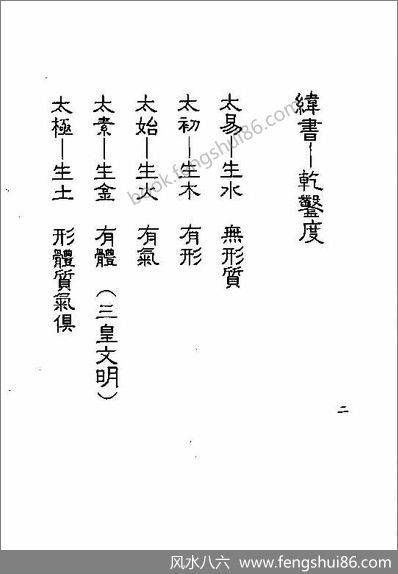 緯書—乾鑿度
太易—生水　無形質
太初—生木　有形
太始—生火　有氣
太素—生金　有體（三皇文明）
太極—生土　形體質氣俱
二
book.fengshui86.com
风水八六 www.fengshui86.com